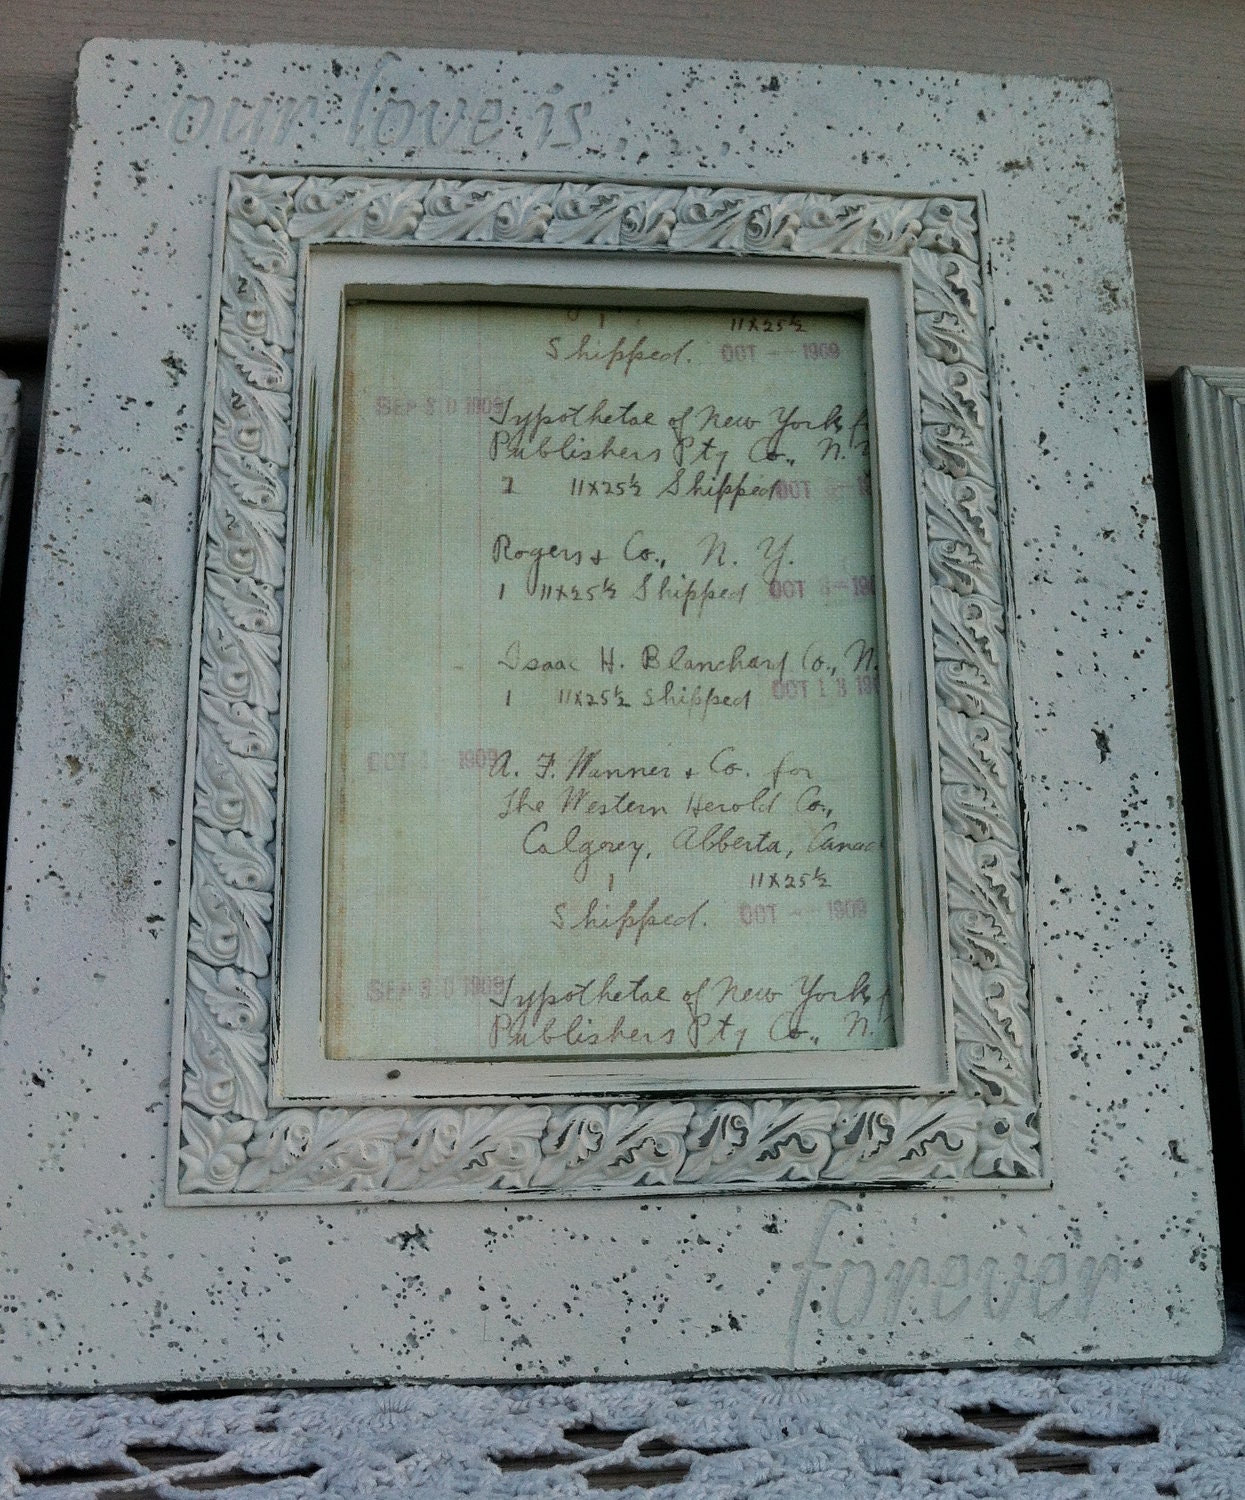 our love is . . . .
1 11x25½
Shipped. OCT -- 1909
SEP 30 1909 Typothetae of New York f
Publishers Pty Co., N.
1 11x25½ Shipped OCT
Rogers & Co., N. Y.
1 11x25½ Shipped OCT
Isaac H. Blanchard Co., N.
1 11x25½ Shipped OCT 13
OCT 1 - 1909 A. F. Wanner & Co. for
The Western Herold Co.,
Calgrey, Alberta, Canad
1 11x25½
Shipped. OCT -- 1909
SEP 30 1909 Typothetae of New York f
Publishers Pty Co., N.
forever